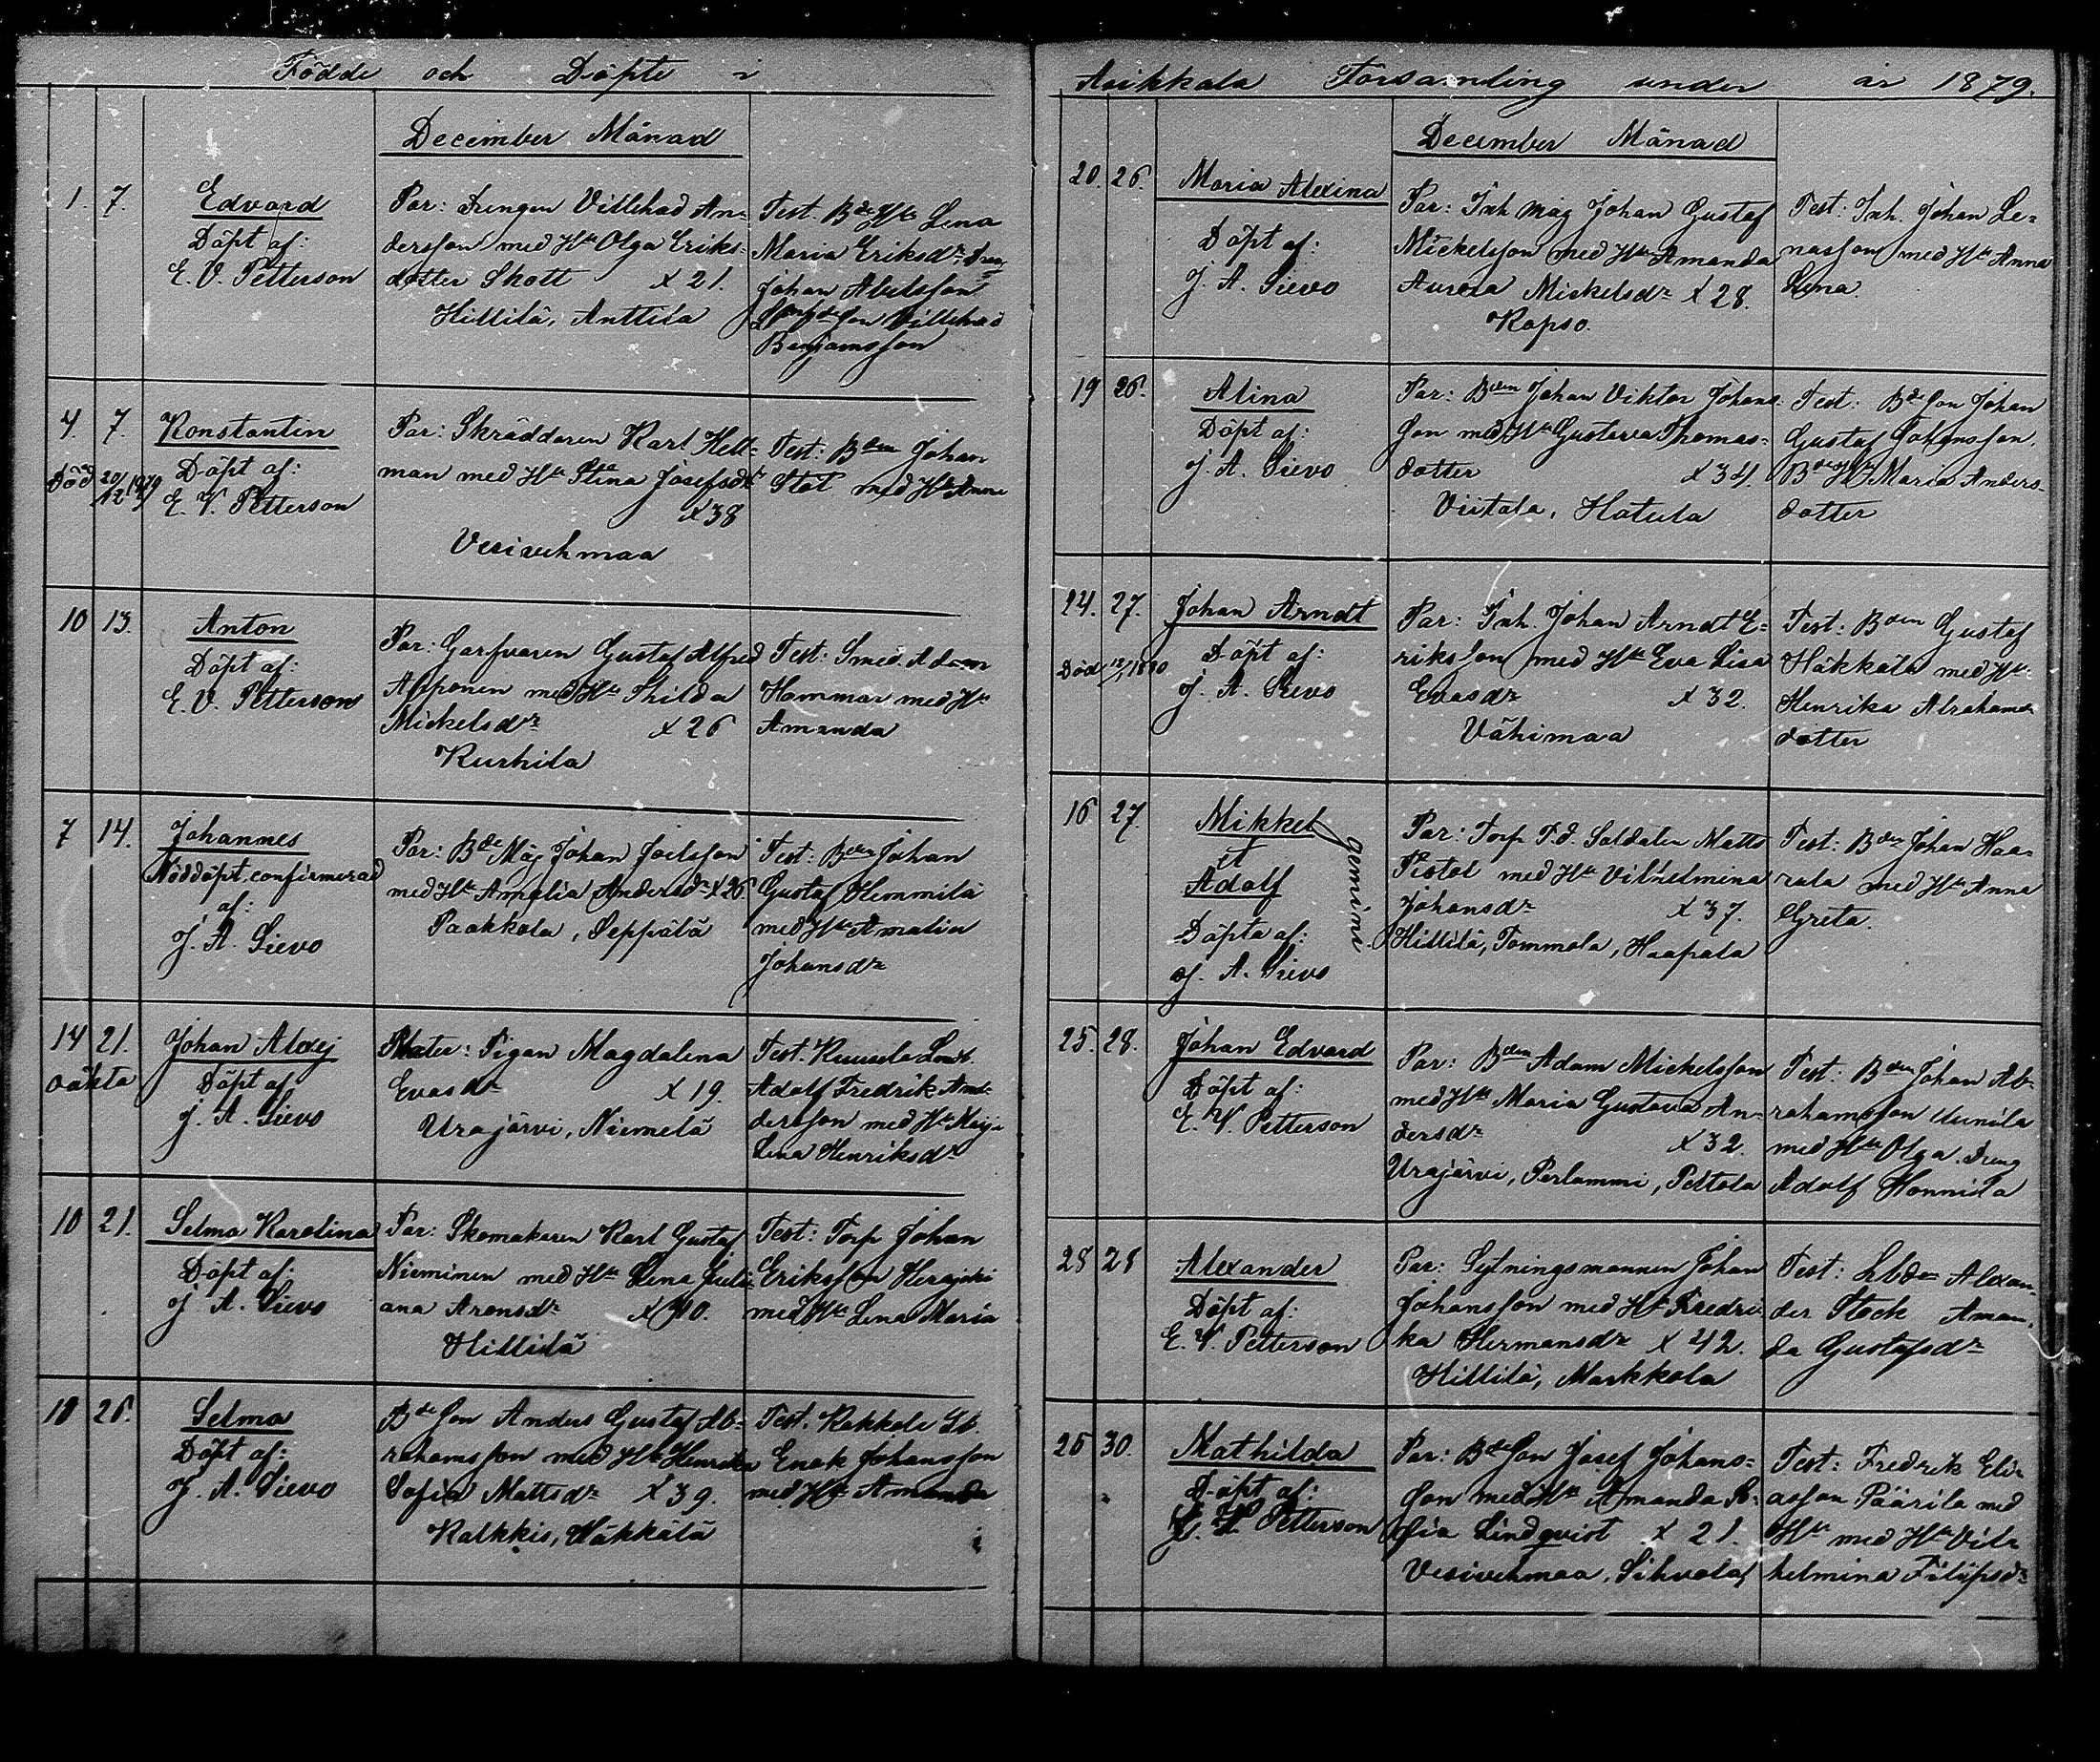 Födde och Döpte i
December Månad
1. 7. Edvard
Döpt af:
E. V. Petterson
Par: Drengen Villehad An=
dersson med Hu Olga Eriks=
dotter Skott x 21.
Hillilä, Anttila
Test. Bde Hu Lena
Maria Eriksdr Dreng
Johan Abelsson
son Villehad
Benjamsson
4. 7. Konstantin
Död 20/12 1879
Döpt af:
E. V. Petterson
Par: Skräddaren Karl Hell=
man med Hu Stina Josefsdr
x 38
Vesivehmaa
Test: Bden Johan
Stot med Hu Anna
10 13. Anton
Döpt af:
E. V. Petterson
Par: Garfvaren Gustaf Alfred
Apponen med Hu Thilda
Mickelsdr x 26
Kurhila
Test: Smed. Adam
Hammar med Hu
Amanda
7 14. Johannes
Nöddöpt confirmerad
af:
J. A. Sievo
Par: Bde Måg Johan Joelsson
med Hu Amalia Andersdr x 26.
Paakkola, Seppälä
Test: Bden Johan
Gustaf Hemmilä
med Hu Amalia
Johansdr
14 21. Johan Alexej
oäkta
Döpt af
J. A. Sievo
Mater: Pigan Magdalena
Evasdr x 19.
Urajärvi, Niemelä
Test. Kuusela
Adolf Fredrik An=
dersson med Hu Maja
Lena Henriksdr
10 21. Selma Karolina
Döpt af:
J. A. Sievo
Par: Skomakaren Karl Gustaf
Nieminen med Hu Lena Juli=
ana Aronsdr x 40.
Hillilä
Test: Torp Johan
Eriksson Herajoki
med Hu Lena Maria
10 26. Selma
Döpt af:
J. A. Sievo
Bde son Anders Gustaf Ab=
rahamsson med Hu Henrika
Sofia Mattsdr x 39.
Kalkkis, Häkkälä
Test. Kakkola
Enok Johansson
med Hu Amanda
Asikkala Församling under år 1879.
December Månad
20. 26. Maria Alexina
Döpt af:
J. A. Sievo
Par: Inh måg Johan Gustaf
Mickelsson med Hu Amanda
Aurora Mickelsdr x 28.
Kopso.
Test: Inh. Johan Le=
nasson med Hu Anna
Lena.
19 26. Alina
Döpt af:
J. A. Sievo
Par: Bden Johan Viktor Johans
son med Hu Gustava Thomas=
dotter x 34.
Viitala, Hatula
Test: Bde son Johan
Gustaf Johansson.
Bde Hu Maria Anders=
dotter
24. 27. Johan Arndt
Död 12/1 1880
Döpt af:
J. A. Sievo
Par: Inh. Johan Arndt E=
riksson med Hu Eva Lisa
Evasdr x 32.
Vähimaa
Test: Bden Gustaf
Häkkälä med Hu
Henrika Abrahams
dotter
16 27. Mikkel
et
Adolf
gemini
Döpta af:
J. A. Sievo
Par: Torp F. d. Soldaten Matts
Pistol med Hu Vilhelmina
Johansdr x 37.
Hillilä, Tommola, Haapala
Test: Bden Johan Haa=
rala med Hu Anna
Greta.
25. 28. Johan Edvard
Döpt af:
E. V. Petterson
Par: Bden Adam Mickelsson
med Hu Maria Gustava An=
dersdr x 32.
Urajärvi, Perlammi, Peltola
Test: Bden Johan Ab=
rahamsson Uunila
med Hu Olga. Dreng
Adolf Honnila
28 28 Alexander
Döpt af:
E. V. Petterson
Par: Sytningsmannen Johan
Johansson med Hu Fredri
ka Hermansdr x 42.
Hillilä, Markkola
Test: Lbden Alexan=
der Stock Aman=
da Gustafsdr
26 30. Mathilda
Döpt af:
E. V. Petterson
Par: Bde son Josef Johans=
son med Hu Amanda So=
fia Lindqvist x 21.
Vesivehmaa, Sihvola
Test: Fredrik Eli=
asson Päärilä med
Hu med Hu Vil=
helmina Filipsdr